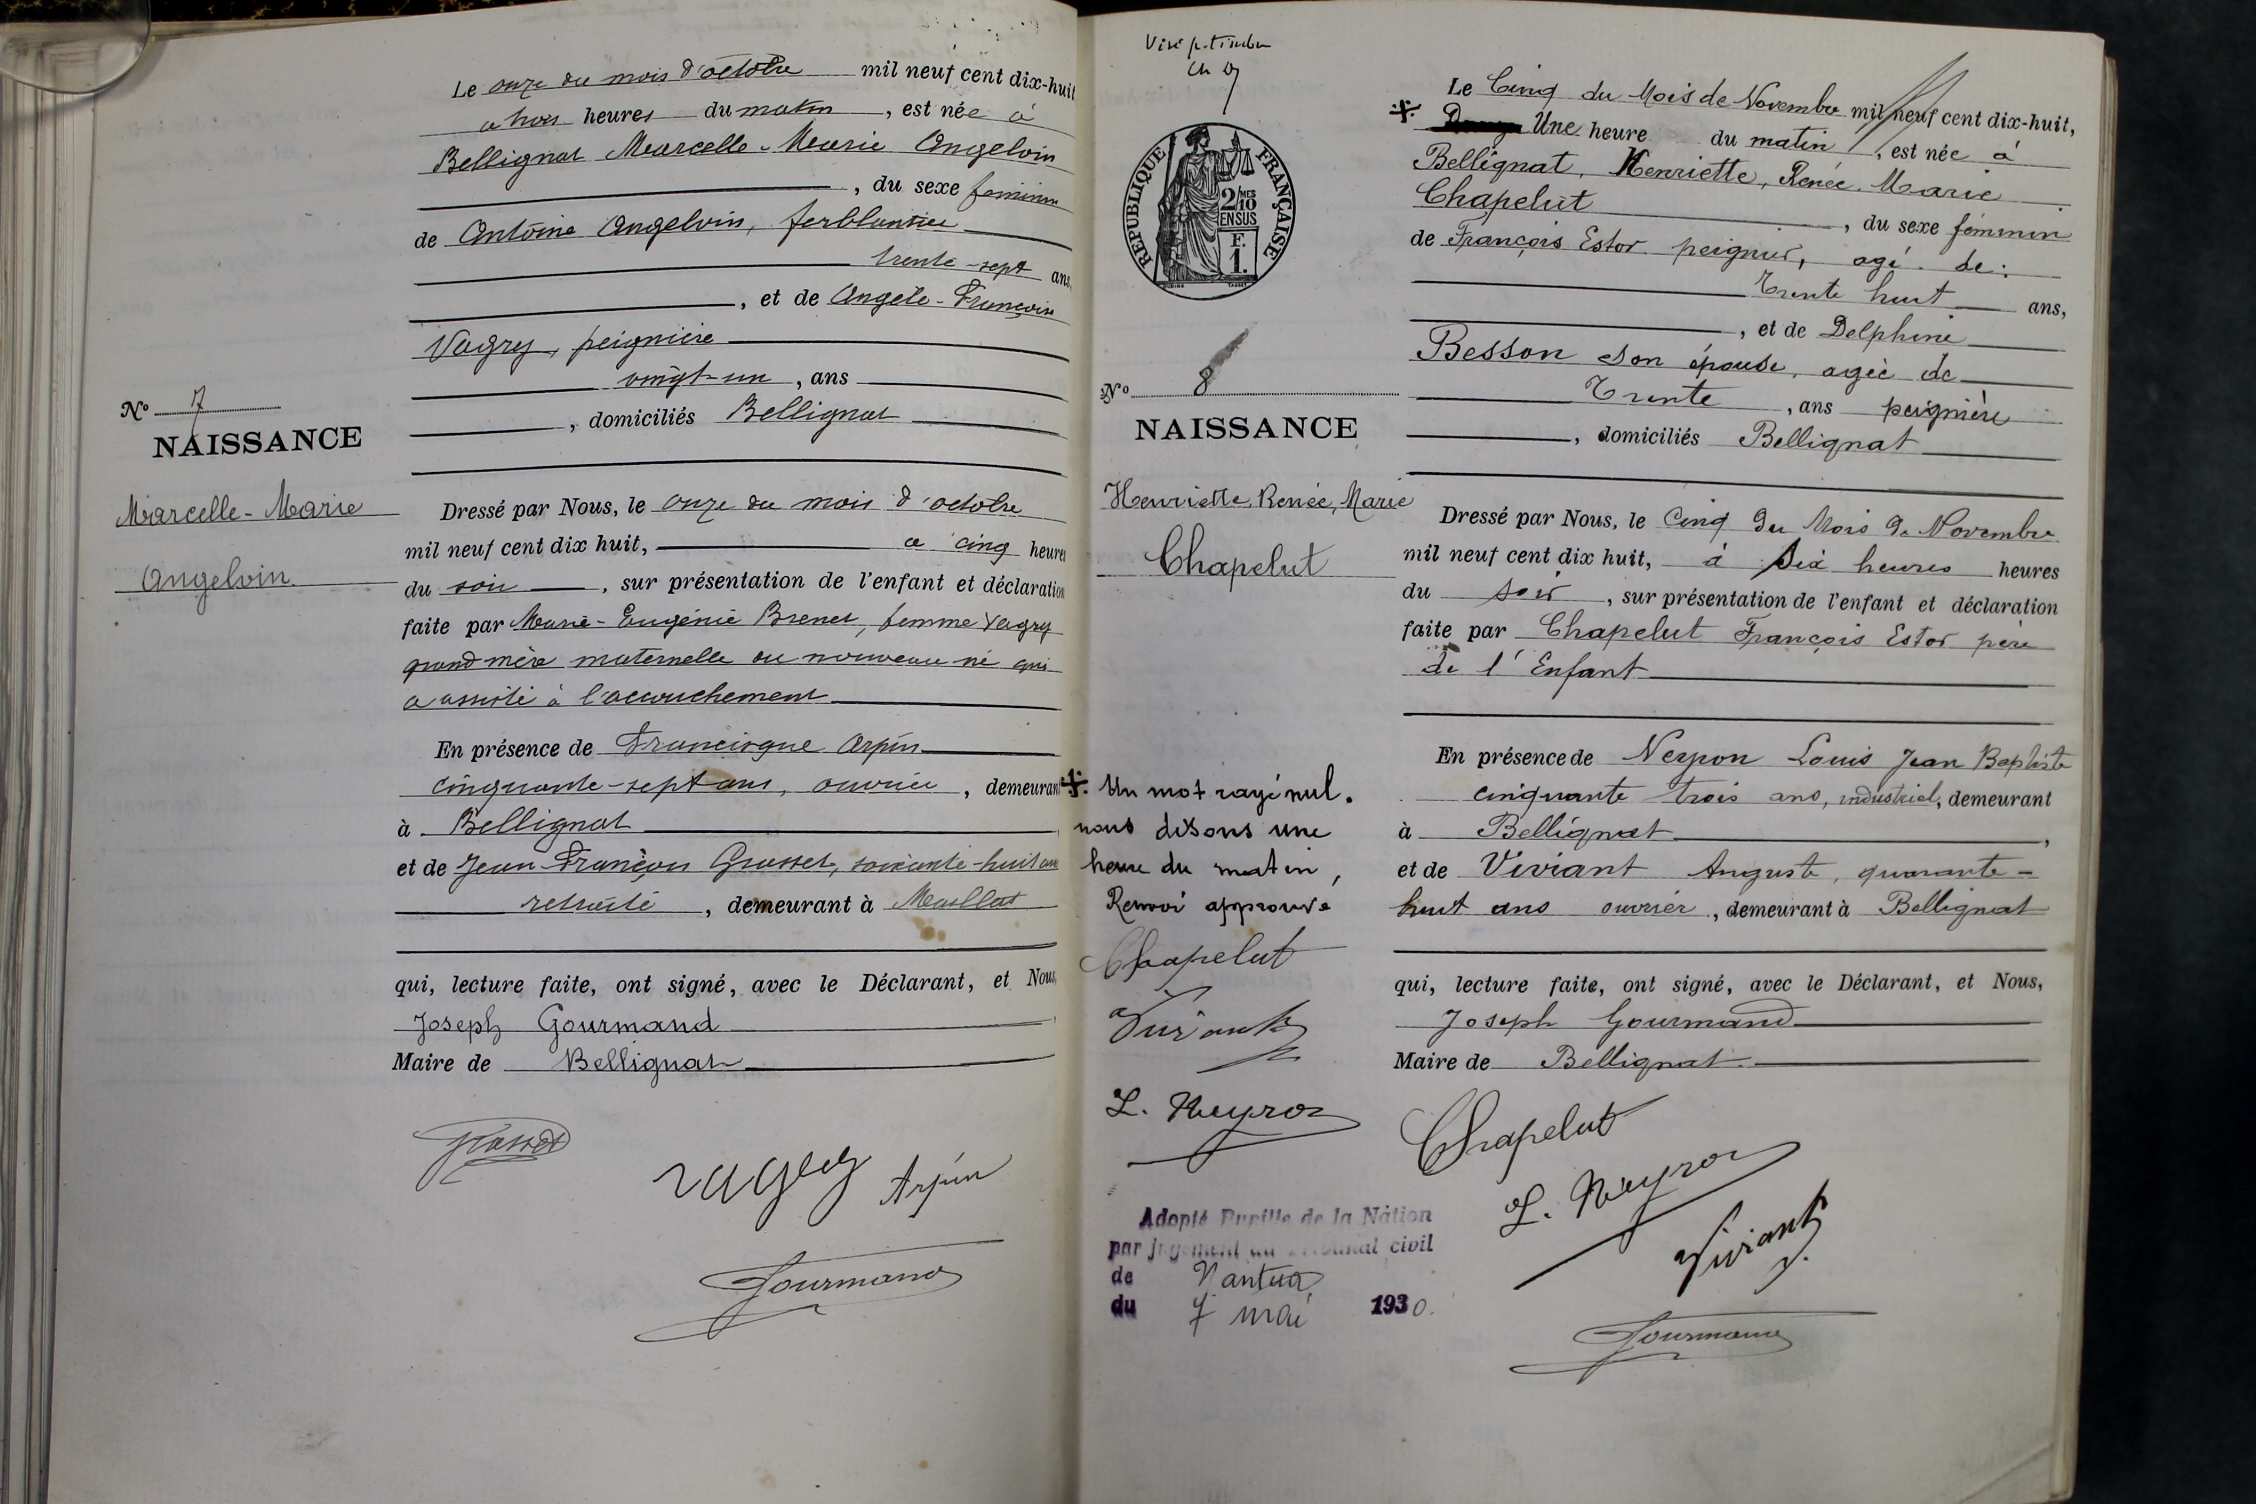 Le onze du mois d'octobre mil neuf cent dix-huit
a trois heures du matin, est née à
Bellignat Marcelle-Marie Angelvin
, du sexe féminin
de Antoine Angelvin, ferblantier
trente-sept ans,
, et de Angele-Françoise
Vagry, peignière
vingt-un, ans
, domiciliés Bellignat
No 7
NAISSANCE
Marcelle-Marie
Angelvin
Dressé par Nous, le onze du mois d'octobre
mil neuf cent dix huit, a cinq heures
du soir, sur présentation de l'enfant et déclaration
faite par Marie-Eugénie Brenet, femme Vagry
grand mère maternelle du nouveau né qui
a assisté à l'accouchement
En présence de Francisque Arpin
cinquante-sept ans, ouvrier, demeurant
à Bellignat
et de Jean-François Grasset, soixante-huit ans
retraité, demeurant à Maillat
qui, lecture faite, ont signé, avec le Déclarant, et Nous,
Joseph Gourmand
Maire de Bellignat
Grasset
Vagry Arpin
Gourmand
Visé p. timbre
RÉPUBLIQUE FRANÇAISE
2/10 MES
EN SUS
F.
1.
No 8
NAISSANCE
Henriette, Renée, Marie
Chapelut
Un mot rayé nul.
nous disons une
heure du matin,
Renvoi approuvé
Chapelut
Viviant
L. Neyron
Adopté Pupille de la Nation
par jugement du Tribunal civil
de Nantua
du 7 mai 1930.
Le Cinq du Mois de Novembre mil neuf cent dix-huit,
Une heure du matin, est née à
Bellignat, Henriette, Renée, Marie
Chapelut, du sexe féminin
de François Estor peigneur, agé de:
Trente huit ans,
, et de Delphine
Besson son épouse, agée de
Trente, ans peignière
, domiciliés Bellignat
Dressé par Nous, le Cinq du Mois de Novembre
mil neuf cent dix huit, à Six heures heures
du soir, sur présentation de l'enfant et déclaration
faite par Chapelut François Estor père
de l'Enfant
En présence de Neyron Louis Jean Baptiste
cinquante trois ans, industriel, demeurant
à Bellignat,
et de Viviant Auguste, quarante-
huit ans ouvrier, demeurant à Bellignat
qui, lecture faite, ont signé, avec le Déclarant, et Nous,
Joseph Gourmand
Maire de Bellignat
Chapelut
L. Neyron
Viviant
Gourmand